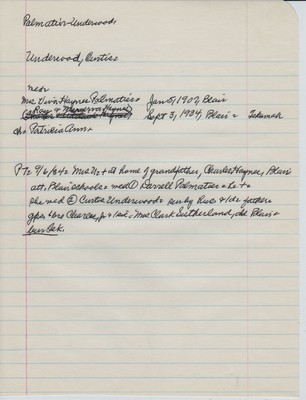 Palmatier-Underwood,
Underwood, Curtis=
ned=
Mrs. Vivin Haynes Palmatier= Jan 5, 1907, Blair
(Roy & Haynes) Sept 3, 1984, Blair = Tekamah
ch= Patricia Ann=
PT= 9/6/84= Mrs. U= + at home of grandfather, Charles Haynes, Blair=
att. Blair schools= med ① Darrell Palmatier= he +=
she med ② Curtis Underwood= sur by Rus= + 1 da=
gps= 4 bro Charles, Jr & 1 sis= Mrs. Clark Sutherland, all Blair=
bur Bk.